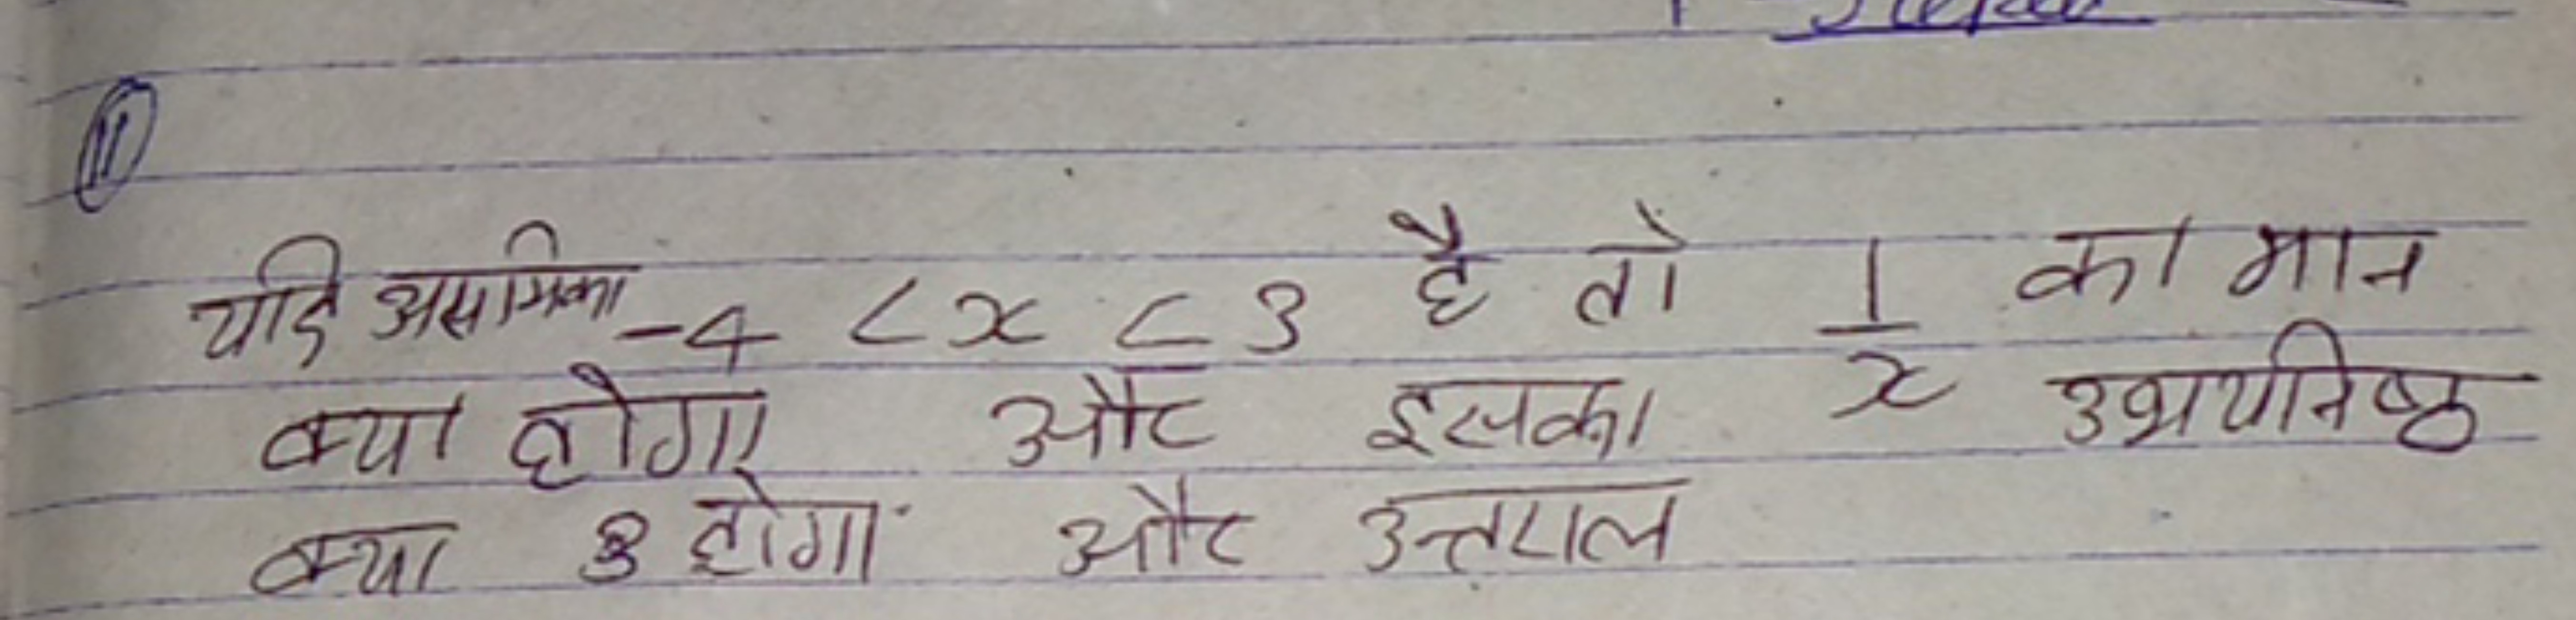 11
यदि असमिका -4 < x < 3 है तो 1/x का मान
क्या होगा और इसका उभयनिष्ठ
क्या होगा और उन्तराल